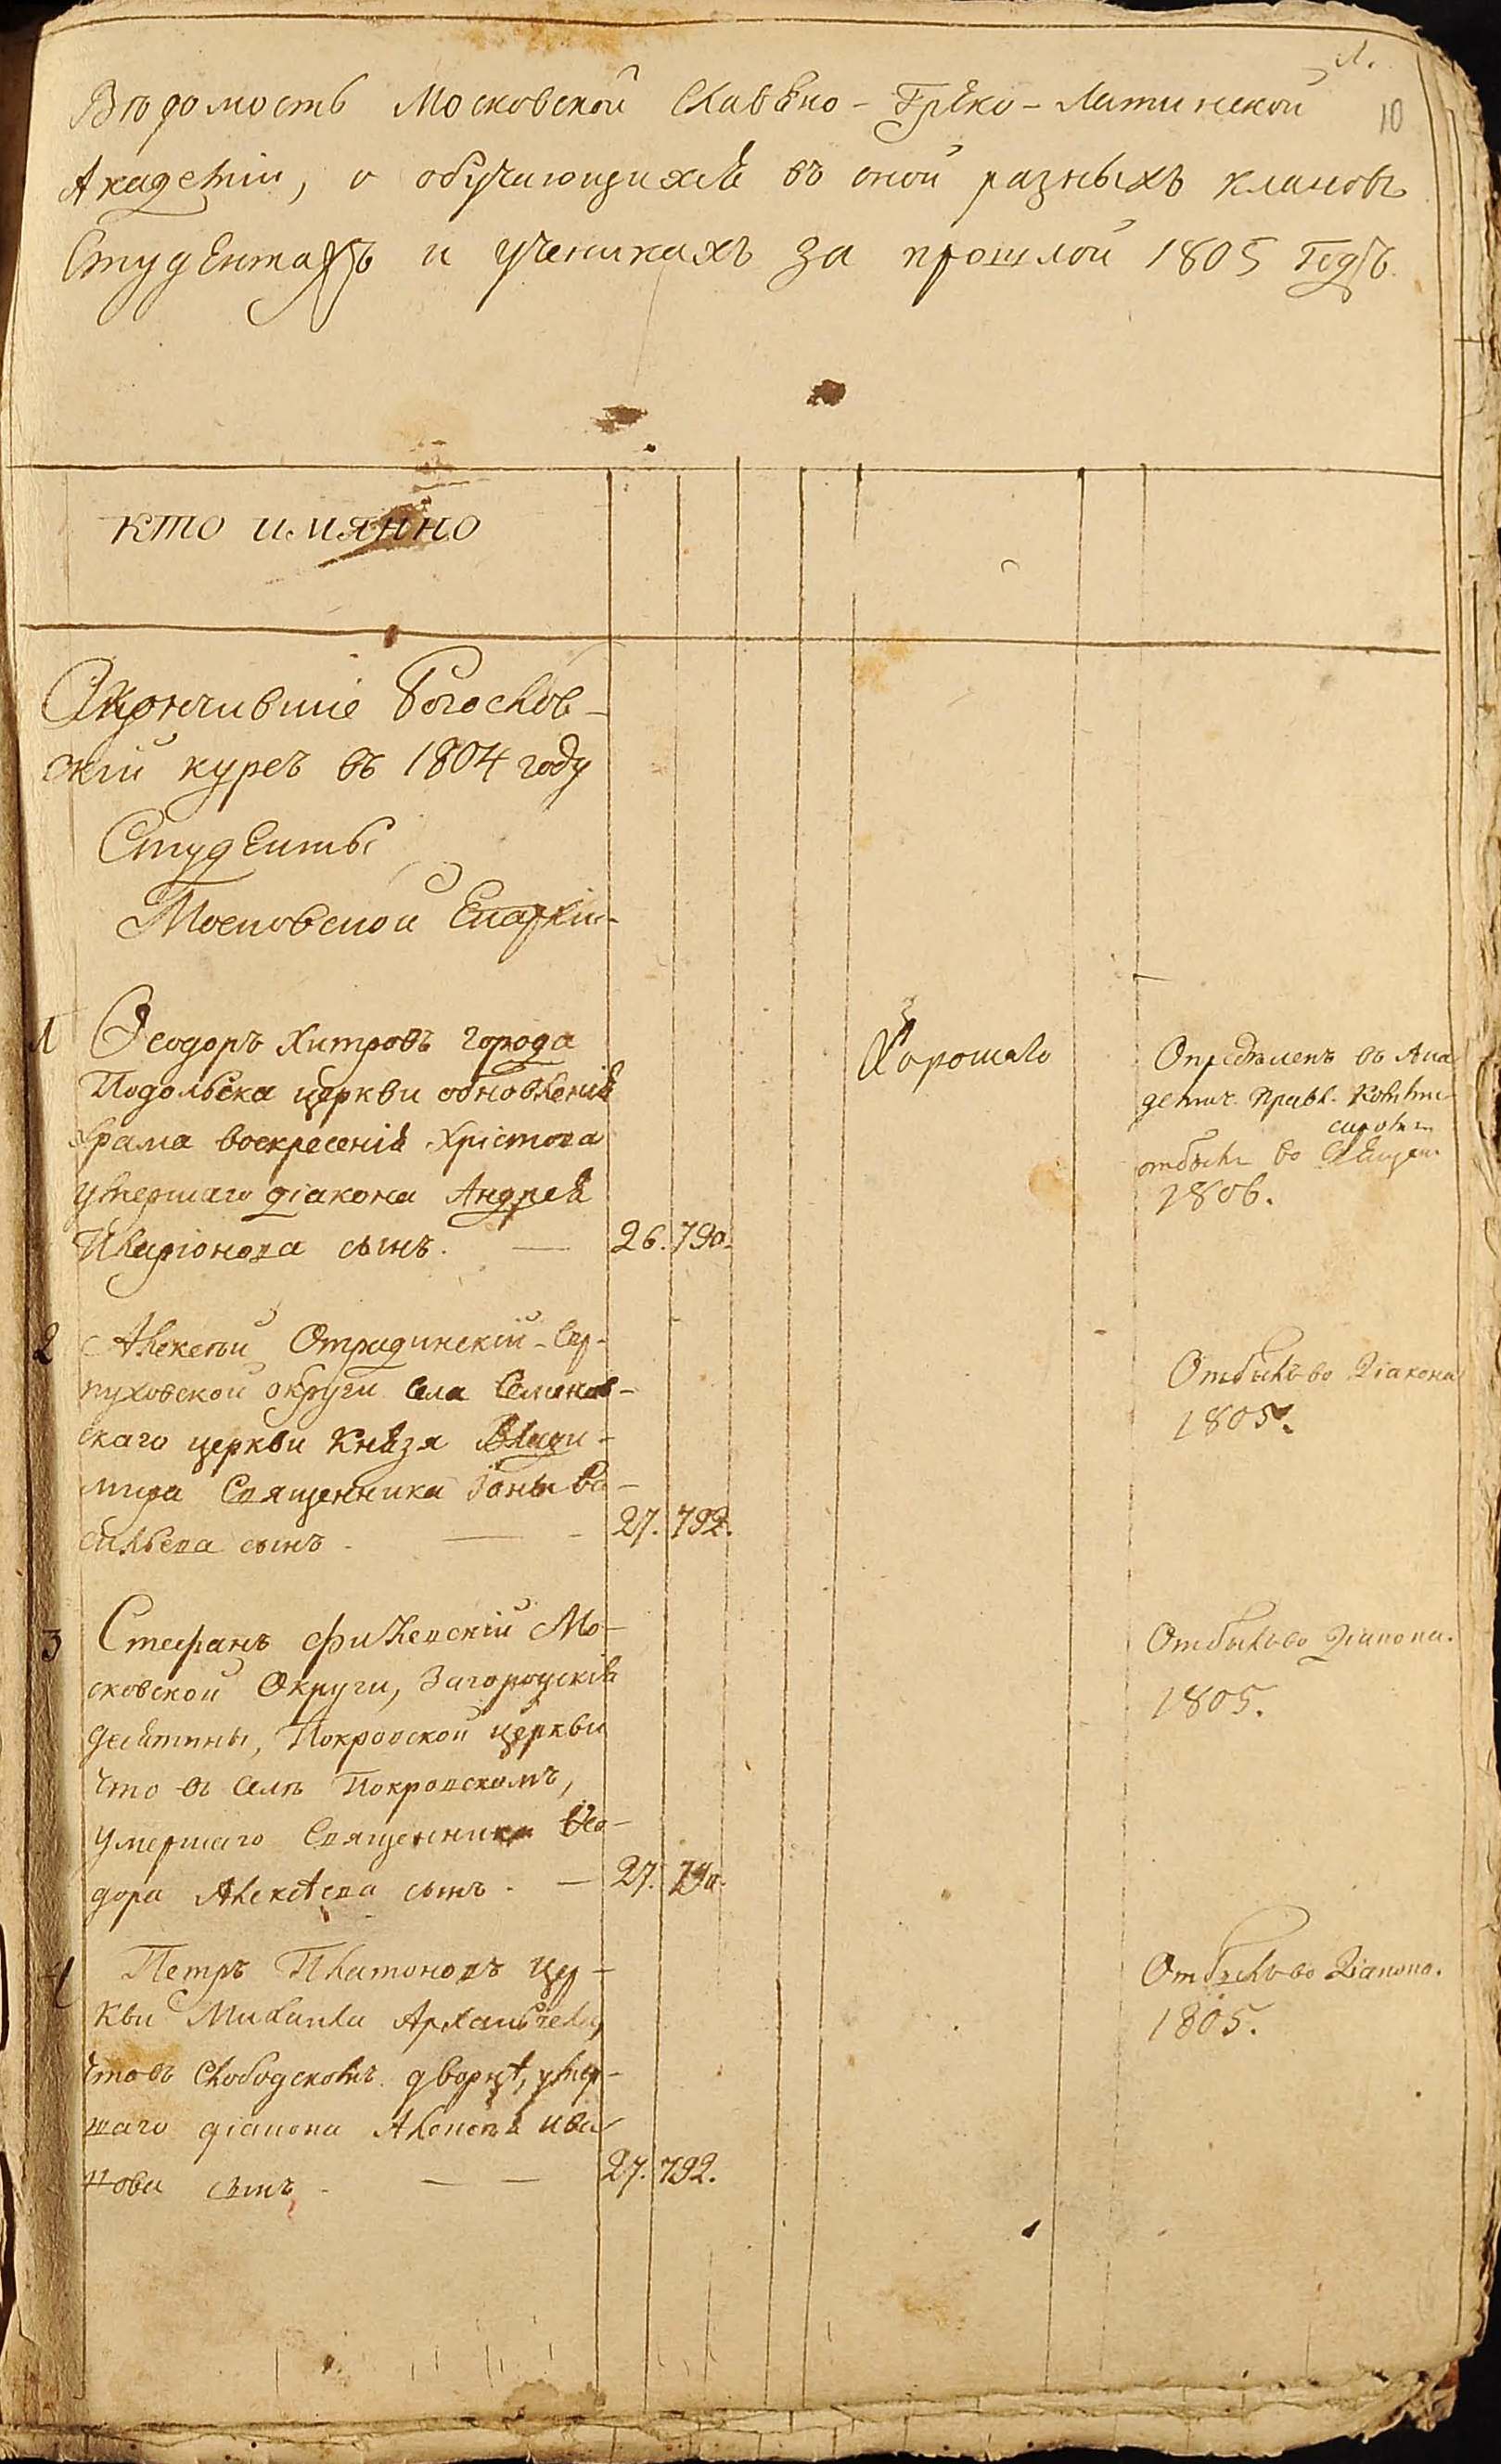 1.
10
Вѣдомость Московской Славено-Греко-Латинской
Академіи, о обучающихся въ оной разныхъ классовъ
Студентахъ и ученикахъ за прошлой 1805 Годъ.
кто имянно
Окончившіе Богослов-
скій курсъ въ 1804 году
Студенты
Московской Епархіи
1 Ѳеодоръ Хитровъ города
Подольска церкви обновленія
храма воскресенія Христова
умершаго діакона Андрея
Иларіонова сынъ. — 26. 790.
Хорошаго
Опредѣленъ въ Ака
демич. Правл.
отбылъ во Священ
1806.
2 Алексѣй Отрадинскій - Сер-
пуховской округи села Семенов-
скаго церкви Князя Влади-
мира Священника Іоны Ва-
сильева сынъ. — 27. 792.
Отбылъ во Діакона
1805.
3 Стефанъ Филевскій Мо-
сковской Округи, Загородскія
десятины, Покровской церкви
что въ селѣ Покровскомъ,
умершаго Священника Ѳео-
дора Алексѣева сынъ. — 27. 790.
Отбылъ во Діакона.
1805.
4 Петръ Платоновъ Цер-
кви Михаила Архангела,
что въ Слободскомъ дворцѣ, умер-
шаго діакона Алексѣя Ива
нова сынъ. — — 27. 792.
Отбылъ во Діакона.
1805.